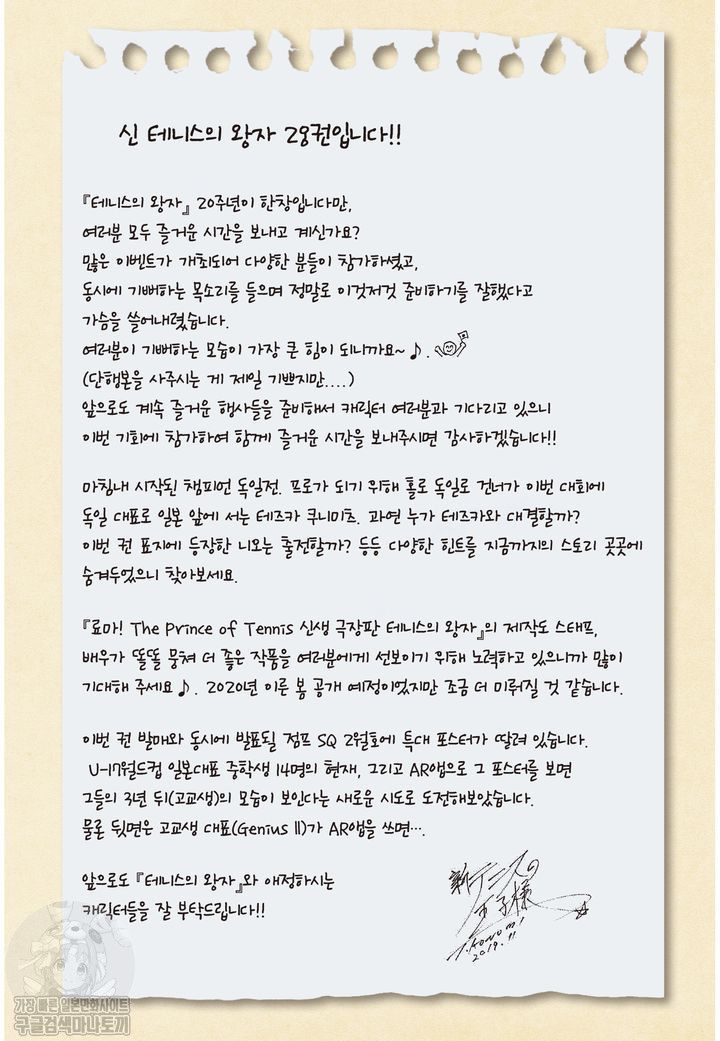 신 테니스의 왕자 28권입니다!!
『테니스의 왕자』 20주년이 한창입니다만,
여러분 모두 즐거운 시간을 보내고 계신가요?
많은 이벤트가 개최되어 다양한 분들이 참가하셨고,
동시에 기뻐하는 목소리를 들으며 정말로 이것저것 준비하기를 잘했다고
가슴을 쓸어내렸습니다.
여러분이 기뻐하는 모습이 가장 큰 힘이 되니까요~♪.
(단행본을 사주시는 게 제일 기쁘지만....)
앞으로도 계속 즐거운 행사들을 준비해서 캐릭터 여러분과 기다리고 있으니
이번 기회에 참가하여 함께 즐거운 시간을 보내주시면 감사하겠습니다!!
마침내 시작된 챔피언 독일전. 프로가 되기 위해 홀로 독일로 건너가 이번 대회에
독일 대표로 일본 앞에 서는 테즈카 쿠니미츠. 과연 누가 테즈카와 대결할까?
이번 권 표지에 등장한 니오는 출전할까? 등등 다양한 힌트를 지금까지의 스토리 곳곳에
숨겨두었으니 찾아보세요.
『료마! The Prince of Tennis 신생 극장판 테니스의 왕자』의 제작도 스태프,
배우가 똘똘 뭉쳐 더 좋은 작품을 여러분에게 선보이기 위해 노력하고 있으니까 많이
기대해 주세요♪. 2020년 이른 봄 공개 예정이었지만 조금 더 미뤄질 것 같습니다.
이번 권 발매와 동시에 발표될 점프 SQ 2월호에 특대 포스터가 딸려 있습니다.
U-17월드컵 일본대표 중학생 14명의 현재, 그리고 AR앱으로 그 포스터를 보면
그들의 3년 뒤(고교생)의 모습이 보인다는 새로운 시도로 도전해보았습니다.
물론 뒷면은 고교생 대표(Genius 11)가 AR앱을 쓰면….
앞으로도 『테니스의 왕자』와 애정하시는
캐릭터들을 잘 부탁드립니다!!
新テニスの
王子様
T.KONOMI
2019.11
가장 빠른 일본만화사이트
구글검색마나토끼